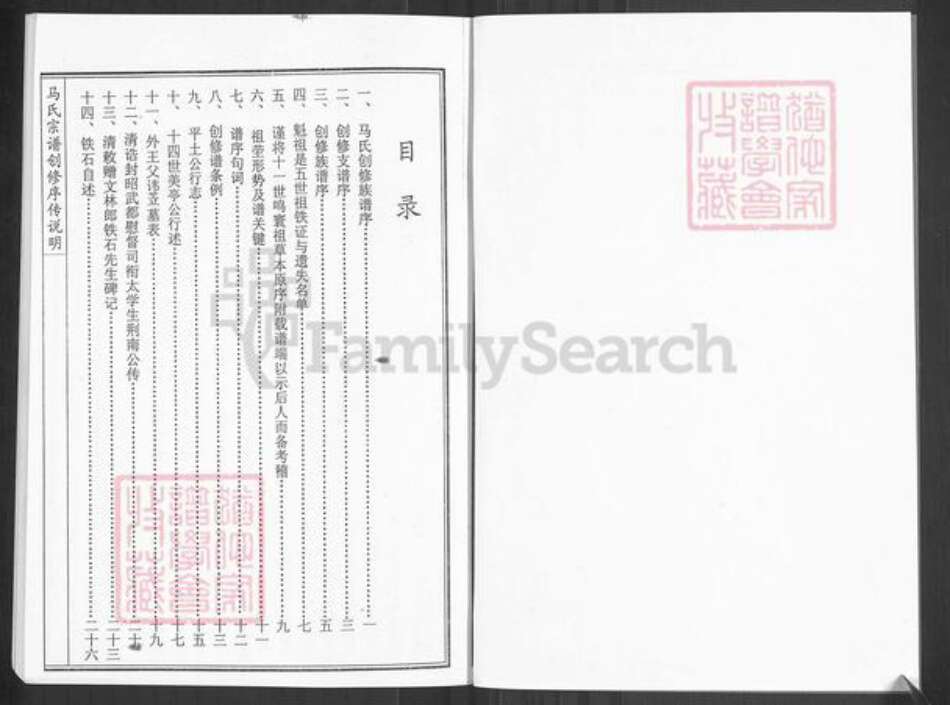 目录
一、马氏创修族谱序 一
二、创修支谱序 三
三、创修族谱序 五
四、魁祖是五世祖铁证与遗失名单 七
五、谨将十一世鸣寰祖草本原序附载谱端以示后人而备考稽 九
六、祖茔形势及谱关键 十一
七、谱序句词 十二
八、创修谱条例 十三
九、平土公行志 十五
十、十四世美亭公行述 十七
十一、外王父讳 墓表 十九
十二、清诰封昭武都慰督司衔太学生荆南公传 二十
十三、清敕赠文林郎铁石先生碑记 二十三
十四、铁石自述 二十六
马氏宗谱创修序传说明
FamilySearch